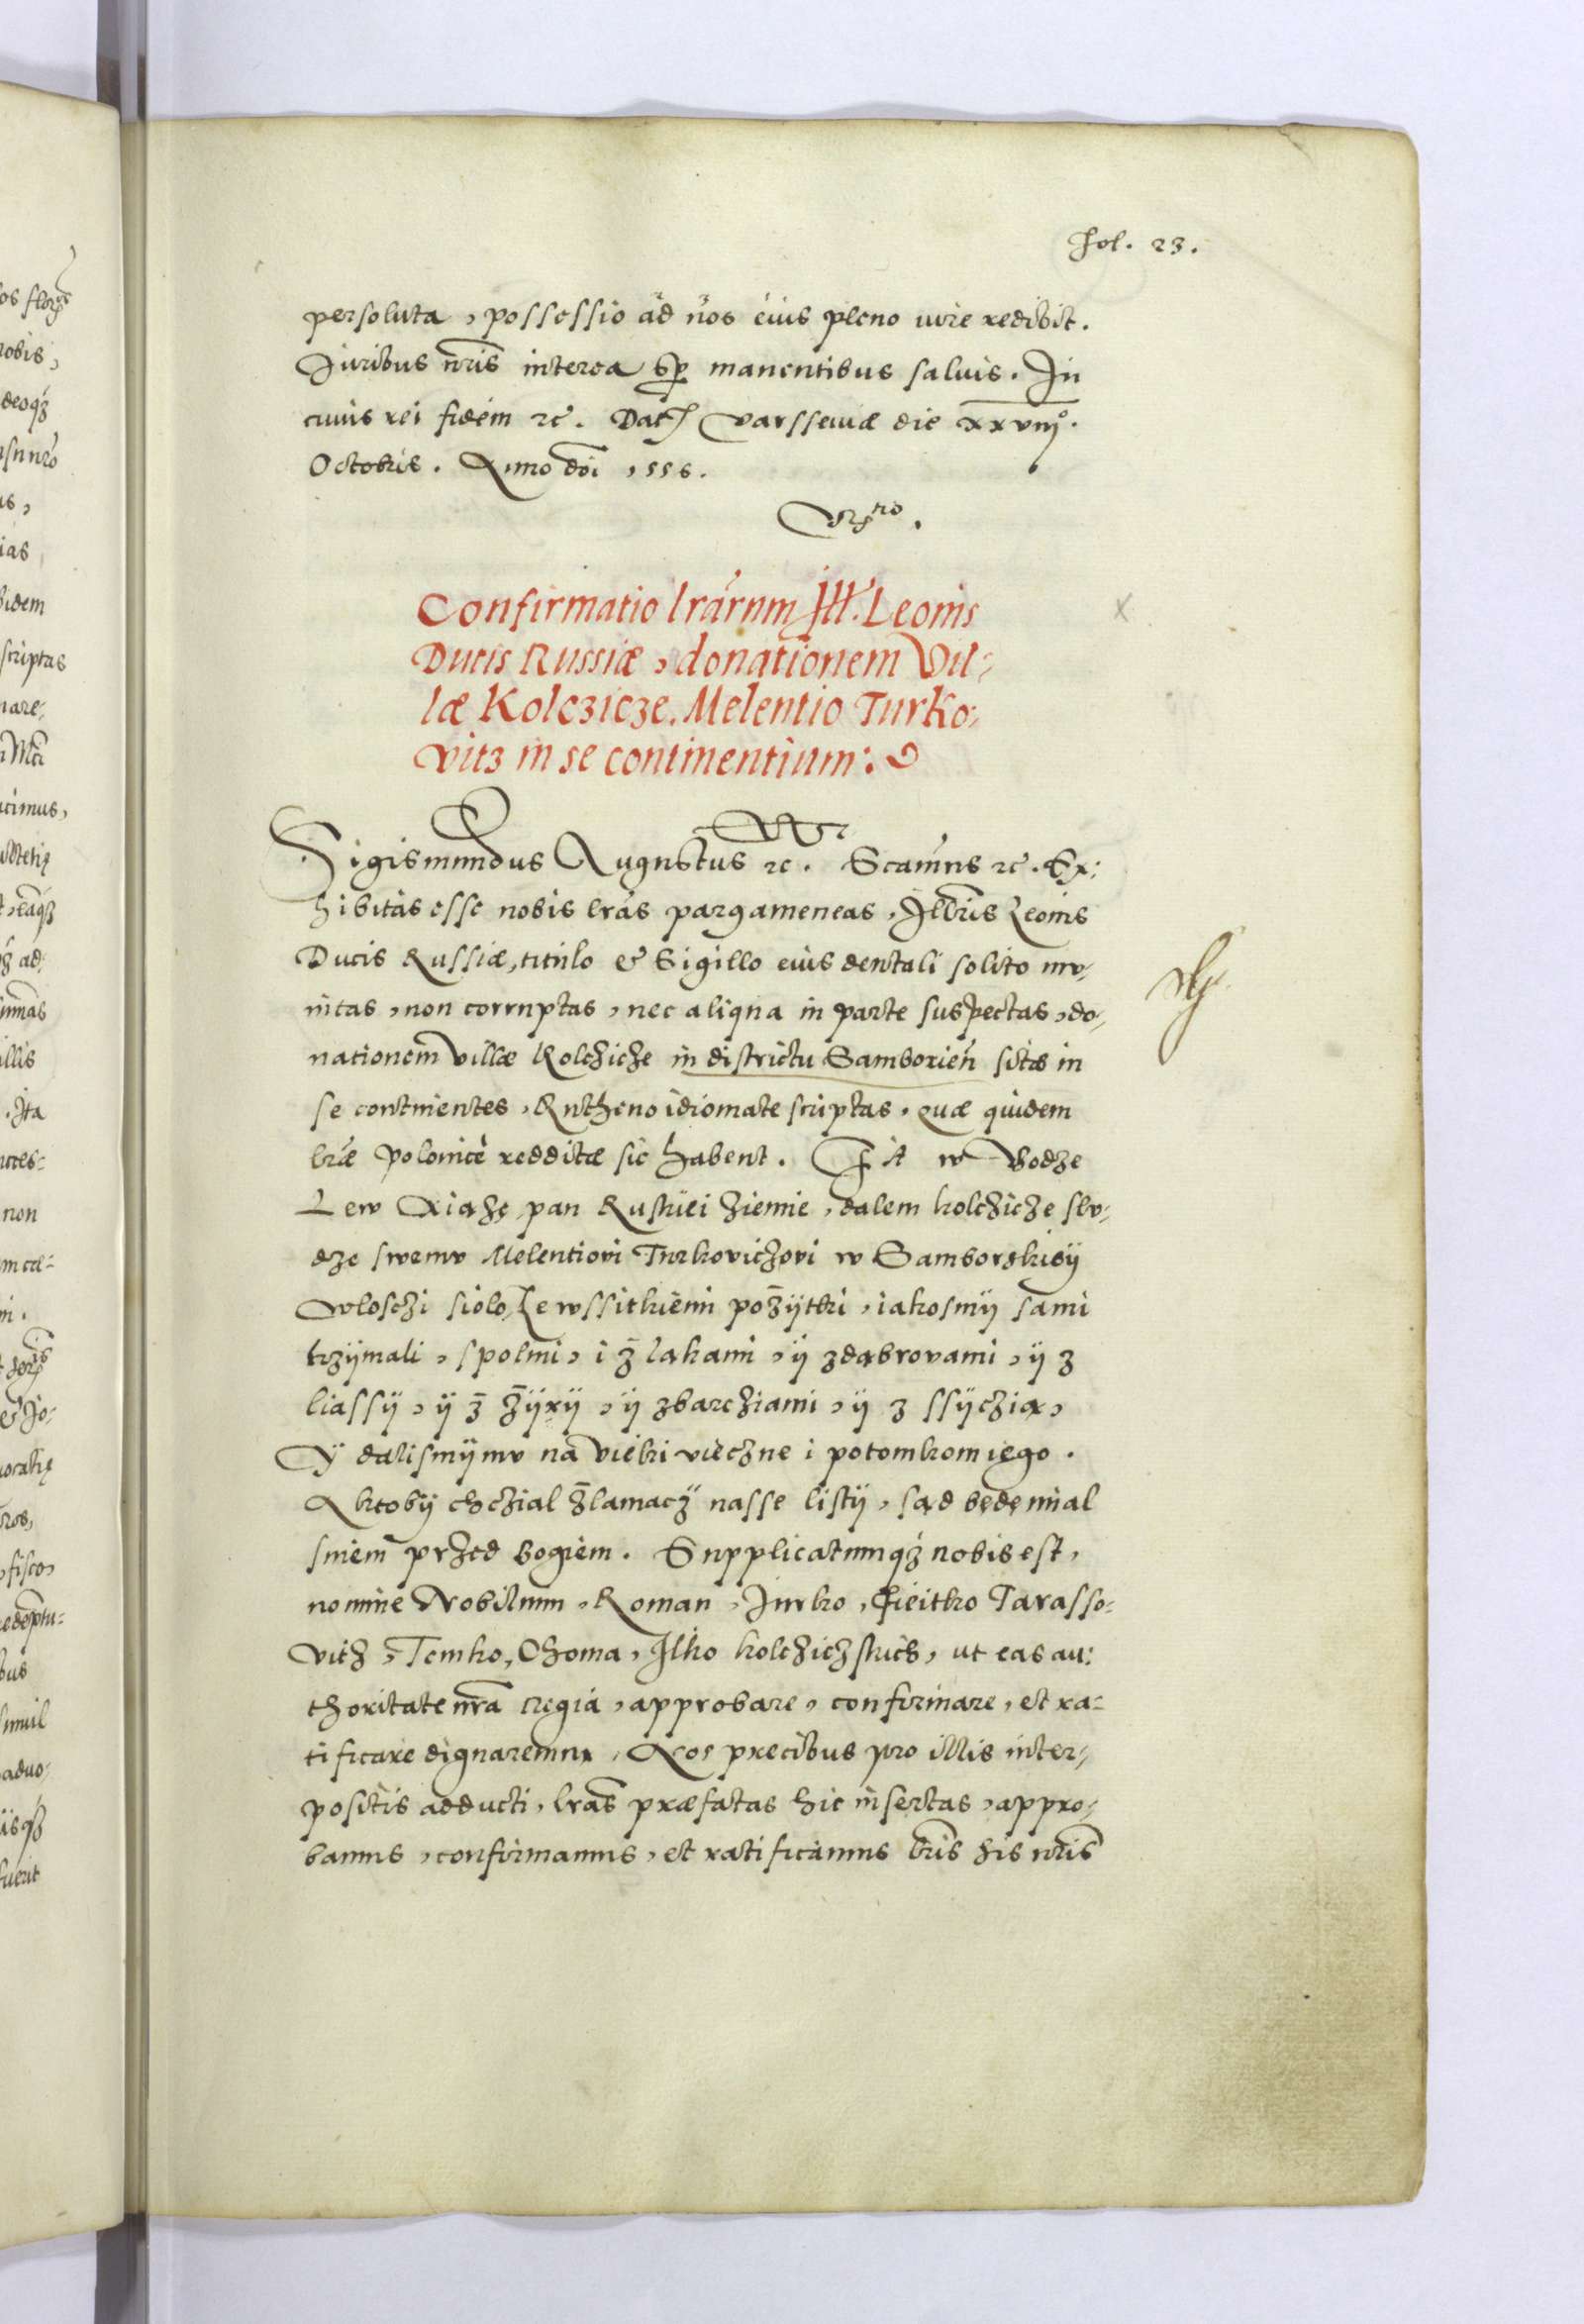 Fol. 23.
persoluta, possessio ad nos eius pleno iure redibit.
Iuribus nris interea sp manentibus saluis. In
cuius rei fidem etc. Dat Varssewiæ die xxviij°.
Octobris. Anno doi 1556.
Confirmatio lrarum Ill. Leonis
Ducis Russiæ, donationem Vil-
læ Kolczicze. Melentio Turko-
vitz in se continentium:
Sigismundus Augustus etc. Scamus etc. Ex:
hibitas esse nobis lras pargameneas, Illris Leonis
Ducis Russiæ, titulo & Sigillo eius dentali solito mu-
nitas, non corruptas, nec aliqua in parte suspectas, do-
nationem villæ Kolczicze in districtu Samborien sitæ in
se continentes, Rutheno idiomate scriptas, quæ quidem
lræ Polonice redditæ sic habent. w Bodze
Lew Xiąże pan Ruskiei ziemie, dalem kolczicze slu-
dze swemu Melentiovi Turkoviczovi w Samborskiey
wlosczi siolo Ze wssitkiemi pożÿtki, iakosmÿ sami
trzÿmali, spolmi, i z lakami, ÿ zdąbrovami, ÿ z
liassÿ, ÿ z żÿrÿ, ÿ zbarcziami, ÿ z ssÿcziąx,
Ÿ dalismÿmu na vieki vieczne i potomkom iego.
A ktobÿ chczial zlamacz nasse listÿ, sąd będę mial
sniem przed bogiem. Supplicatumqz nobis est,
nomine Nobilium, Roman, Iurko, Fieitko Tarasso-
vitz, Temko, Choma, Ilko kolcziczskich, ut eas au:
thoritate nra regia, approbare, confirmare, et ra-
tificare dignaremur, Nos precibus pro illis inter-
positis adducti, lras præfatas hic insertas, appro-
bamus, confirmamus, et ratificamus lris his nris